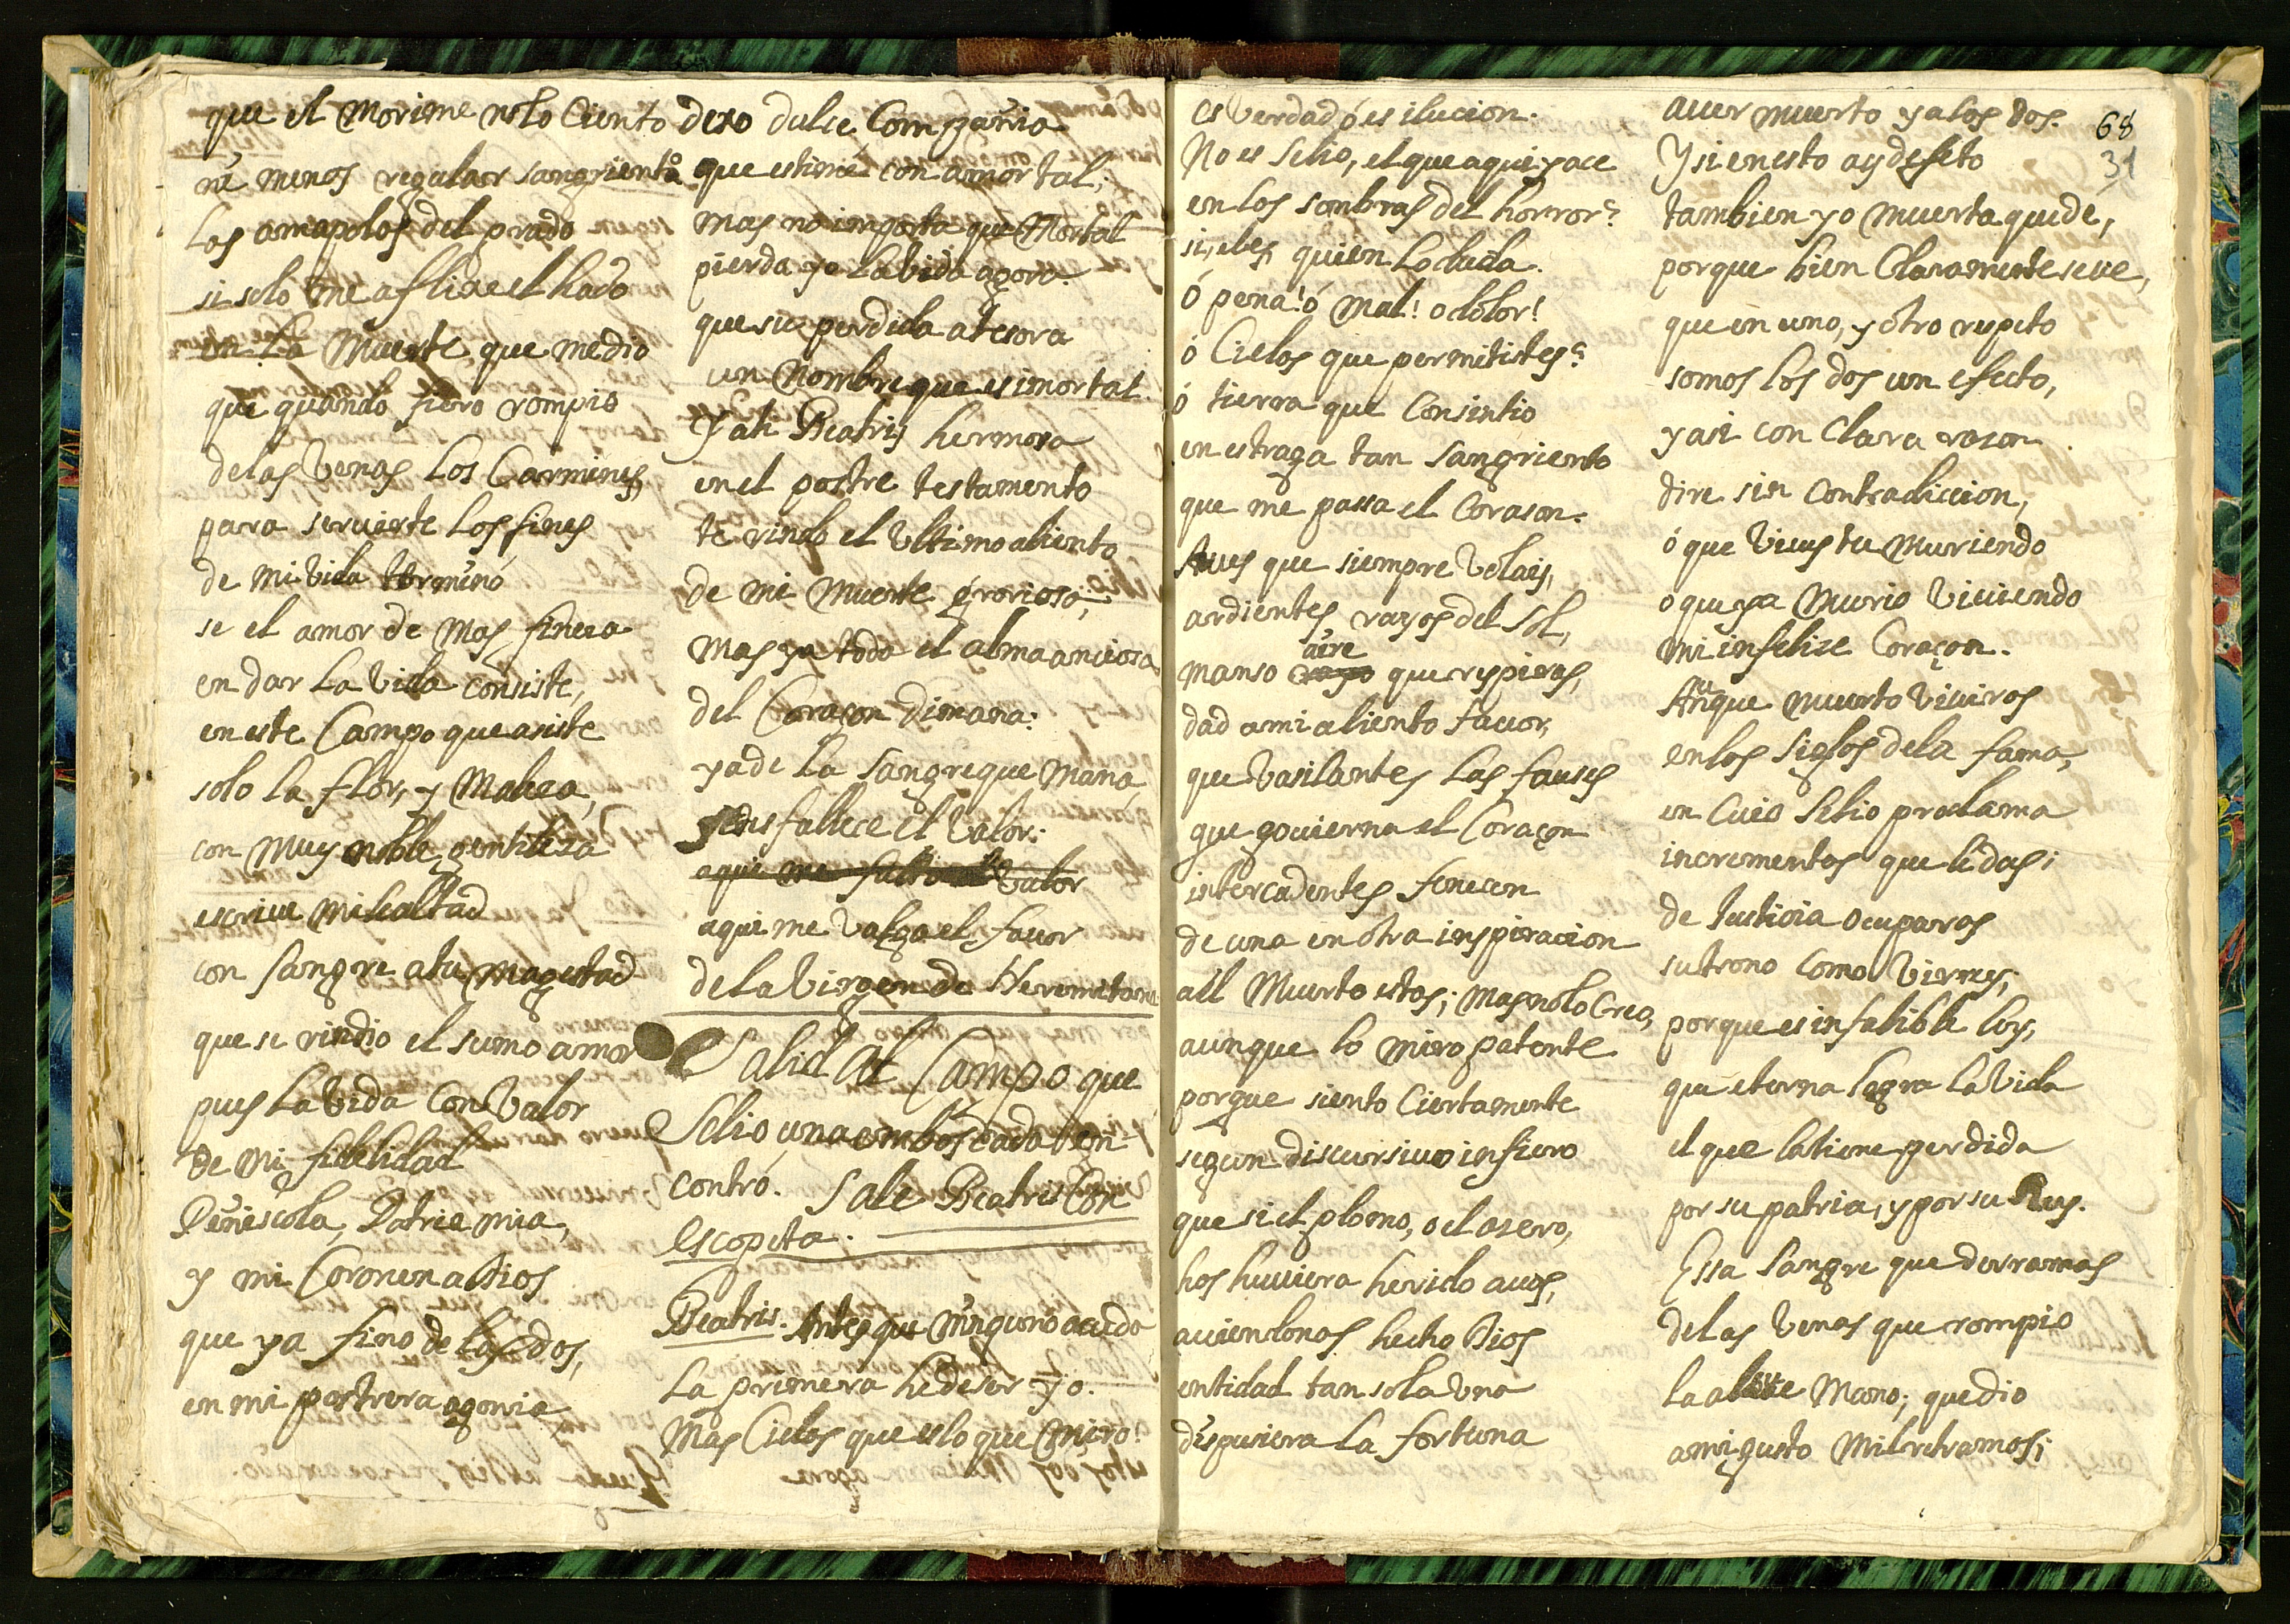 que el Morirme nolo Ciento
ni menos regular sangriento
Las amapolas del prado
si solo me aflixe el hado
en La Muerte, que me dio
que quando fiero rompio
delas Venas Los Carmines
para servirte Los fines
de mi vida terminó
se el amor de Mas fineza
en dar La Vida consiste,
en este Campo que asiste
solo la flor, y Maleza,
con Muy noble gentileza
escriue mi lealtad
con sangre atu Magestad
que se rindio el sumo amor
pues La Vida Con Valor
de Mi fidelidad
Peniscola, Patria mia,
y mi Coronen a Dios
que ya fino de las dos,
en mi postrera agonia
dexo dulce Compañia
que estimé con amor tal;
mas no importa que Mortal
pierda yo La vida agora.
que su perdida atesora
un Nombre que es imortal
Y ati Beatris hermosa
en el postre testamento
te rindo el Ultimo aliento
de mi Muerte
Mas ya todo el alma anciosa
del Coraçon dimana:
y ade La sangre que Mana
fallece el Valor:
aqui me falto el Valor
aqui me Valga el fauor
de La Virgen de Heremitana
Salid Al Campo que
Selio, una emboscada en-
contró. Sale Beatris Con
Escopeta.
Beatris. Antes que ninguno acuda
La primera he deser yo.
Mas Cielos que es lo que Miro!
es Verdad ó es ilucion.
No es Selio, el que aqui yace
en los sombras del horror?
si, el es, quien Lo duda.
ó pena! ó Mal! o dolor!
ó Cielos que permitistes?
ó tierra que Consintio
en estraga tan sangriento
que me passa el Corason.
Aues que siempre Volais,
ardientes rayos del sol,
manso aire que respieras,
dad a mi aliento fauor,
que Vasilantes las fauses
que gouierna el Coraçon
intercadentes fenecen
de una en otra inspiracion
all Muerto estas; mas nolo Creo,
aúnque lo miro patente
porque siento Ciertamente
segun discursiuo infiero
que si el plomo, o el asero,
hos huuiera herido a uos,
auiendonos hecho Dios
entidad tan sola Una
dispusiera La fortuna
auer muerto ya los dos.
68
31
Y si en esto ay defeto
tambien yo Muerta quede,
porque bien Claramente se ue,
que en uno, y otro respeto
somos Los dos un efecto,
y asi con Clara rason
dire sin Contradiccion,
ó que Viues tu Muriendo
o que ya Murio Viuiendo
mi infelize Coraçon.
Aunque Muerto Viuiras
en los Siglos dela fama,
en Cuio Selio proclama
incrementos que le das;
de Justicia Ocuparas
su trono Como Viernes;
porque es infalible Ley,
que eterna Logra La Vida
el que latiene perdida
por su patria, y por su Rey.
Essa Sangre que derramas
delas Venas que rompio
la aleue Mano; que dio
a mi gusto Mil retramas;